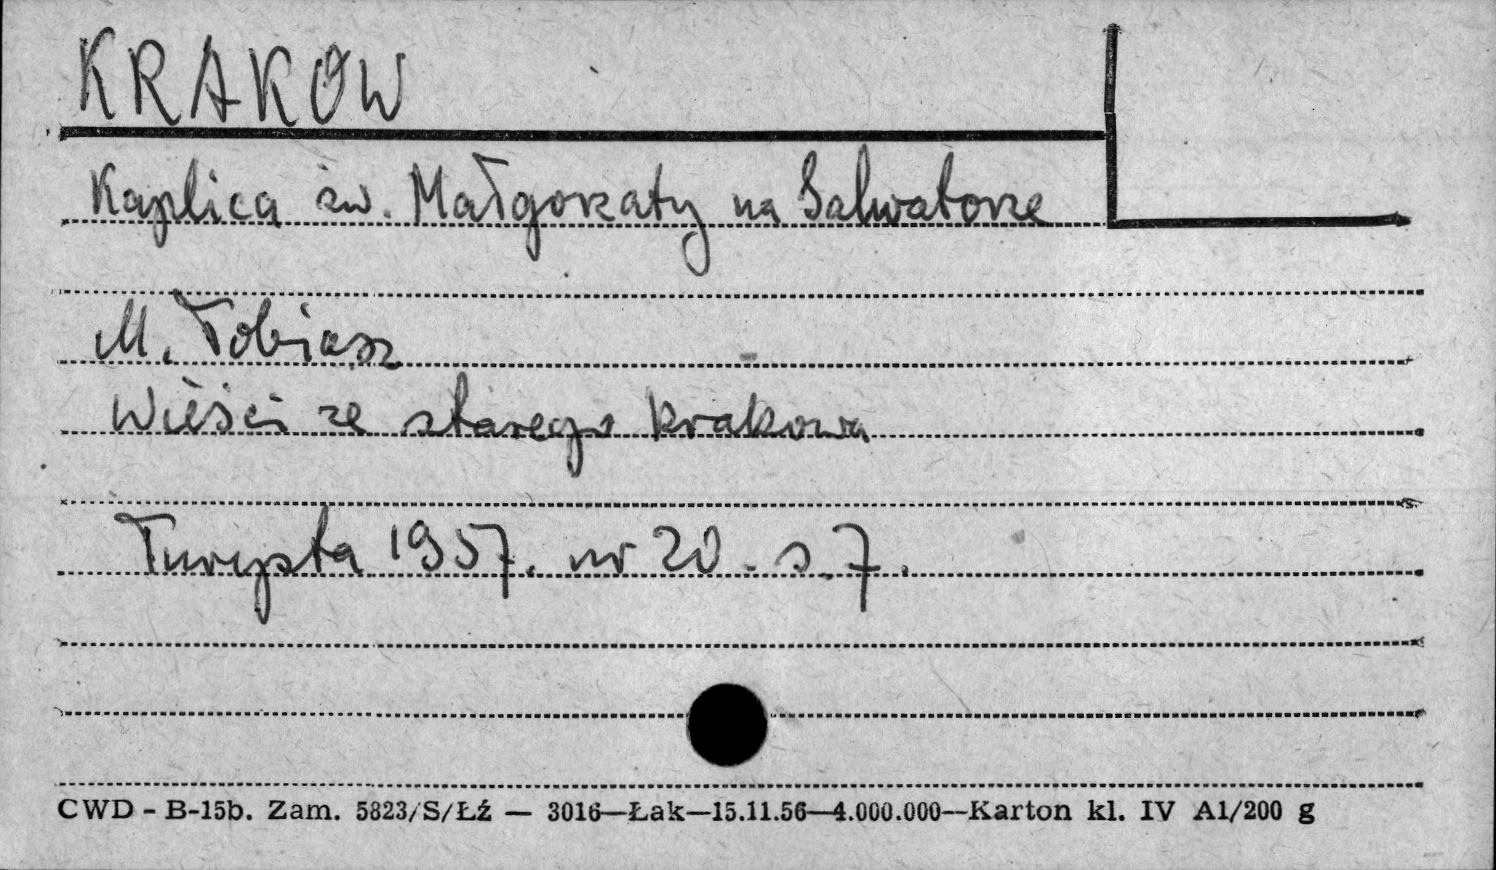 KRAKÓW
Kaplica św. Małgorzaty na Salwatorze
M. Tobiasz
Wieści ze starego Krakowa
Turysta 1957. nr 20. s. 7.
CWD - B-15b. Zam. 5823/S/Łź — 3016—Łak—15.11.56—4.000.000—Karton kl. IV A1/200 g